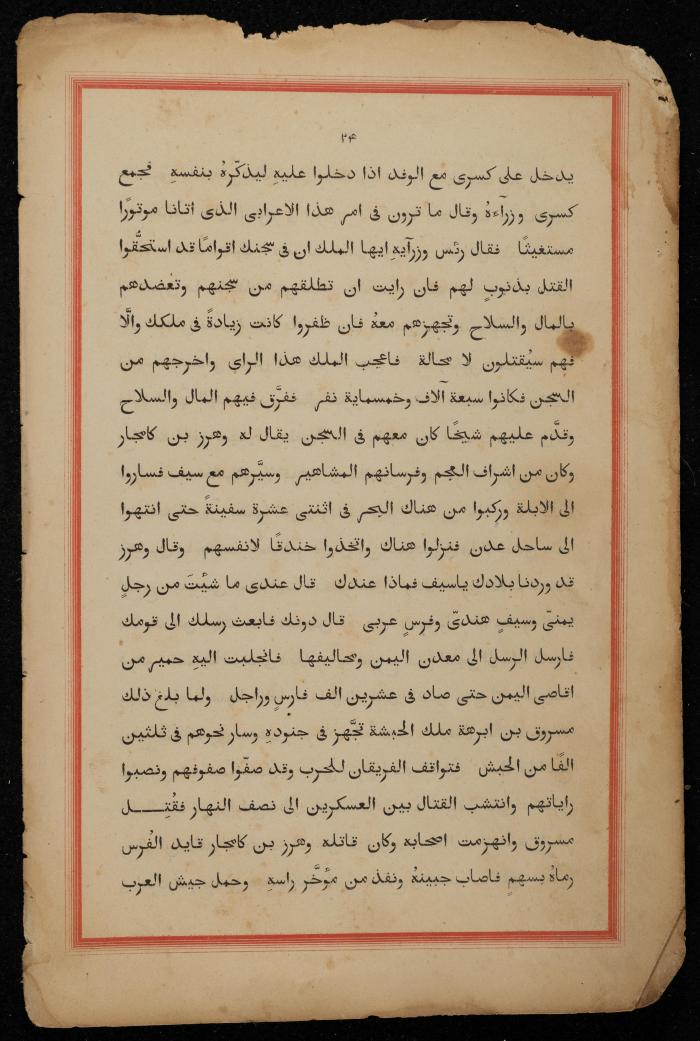 ٢٤
يدخل على كسرى مع الوفد اذا دخلوا عليهِ ليذكّرهُ بنفسهِ فجمع
كسرى وزرآءهُ وقال ما ترون فى امر هذا الاعرابى الذى اتانا موتورًا
مستغيثًا فقال رئس وزرآيهِ ايها الملك ان فى سجنك اقوامًا قد استحقّوا
القتل بذنوبٍ لهم فان رايت ان تطلقهم من سجنهم وتعضدهم
بالمال والسلاح وتجهزهم معهُ فان ظفروا كانت زيادةً فى ملكك والّا
فهم سيُقتلون لا محالة فاعجب الملك هذا الراى واخرجهم من
السجن فكانوا سبعة آلاف وخمسماية نفر ففرَّق فيهم المال والسلاح
وقدَّم عليهم شيخًا كان معهم فى السجن يقال له وهرز بن كامجار
وكان من اشراف العجم وفرسانهم المشاهير وسيَّرهم مع سيف فساروا
الى الابلة وركبوا من هناك البحر فى اثنتى عشرة سفينةً حتى انتهوا
الى ساحل عدن فنزلوا هناك واتخذوا خندقًا لانفسهم وقال وهرز
قد وردنا بلادك ياسيف فماذا عندك قال عندى ما شئتَ من رجلٍ
يمنىّ وسيفٍ هندىّ وفرسٍ عربى قال دونك فابعث رسلك الى قومك
فارسل الرسل الى معدن اليمن ومحاليفها فانجلبت اليهِ حمير من
اقاصى اليمن حتى صاد فى عشرين الف فارسٍ وراجل ولما بلغ ذلك
مسروق بن ابرهة ملك الحبشة تجهَّز فى جنودهِ وسار نحوهم فى ثلثين
الفًا من الحبش فتواقف الفريقان للحرب وقد صفّوا صفوفهم ونصبوا
راياتهم وانتشب القتال بين العسكرين الى نصف النهار فقُتِـــل
مسروق وانهزمت اصحابه وكان قاتله وهرز بن كامجار قايد الفُرس
رماهُ بسهمٍ فاصاب جبينهُ ونفذ من مؤخَّر راسهِ وحمل جيش العرب